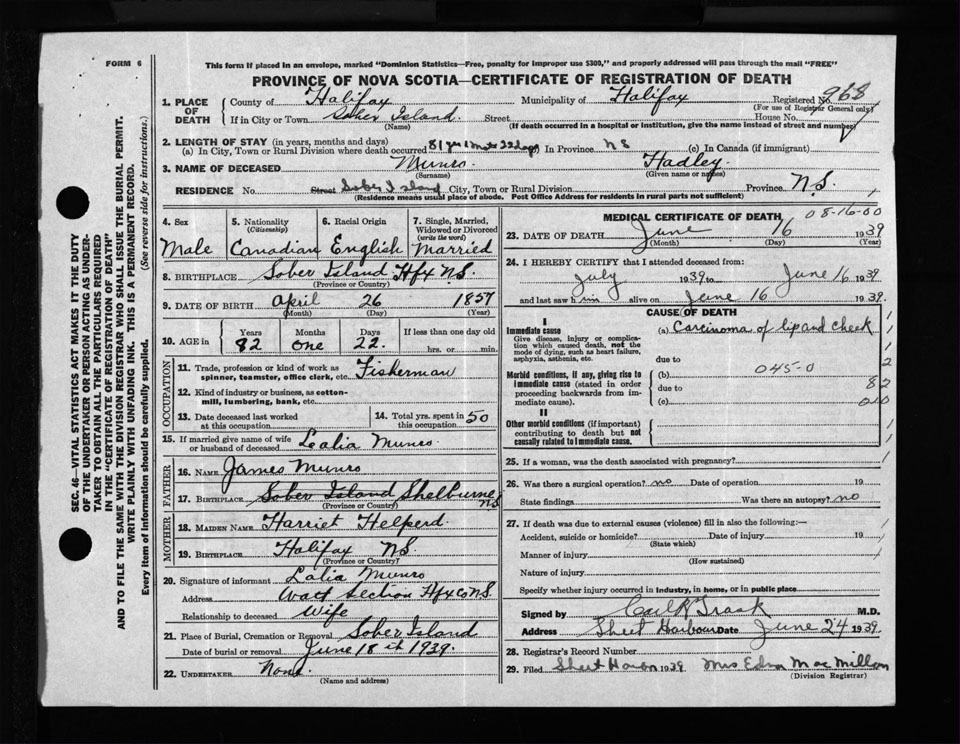 FORM 6
This form if placed in an envelope, marked "Dominion Statistics—Free, penalty for improper use $300," and properly addressed will pass through the mail "FREE"
PROVINCE OF NOVA SCOTIA—CERTIFICATE OF REGISTRATION OF DEATH
SEC. 46—VITAL STATISTICS ACT MAKES IT THE DUTY
OF THE UNDERTAKER OR PERSON ACTING AS UNDER-
TAKER TO OBTAIN ALL THE PARTICULARS REQUIRED
IN THE "CERTIFICATE OF REGISTRATION OF DEATH"
AND TO FILE THE SAME WITH THE DIVISION REGISTRAR WHO SHALL ISSUE THE BURIAL PERMIT.
WRITE PLAINLY WITH UNFADING INK. THIS IS A PERMANENT RECORD.
Every item of Information should be carefully supplied. (See reverse side for instructions.)
1. PLACE OF DEATH
County of Halifax Municipality of Halifax Registered No. 968
(For use of Registrar General only)
If in City or Town Sober Island. Street House No.
(Name) (If death occurred in a hospital or institution, give the name instead of street and number)
2. LENGTH OF STAY (in years, months and days)
(a) In City, Town or Rural Division where death occurred (b) In Province NS (c) In Canada (if immigrant)
3. NAME OF DECEASED Munro Hadley.
(Surname) (Given name or names)
RESIDENCE No. Street Sober Island City, Town or Rural Division Province N.S.
(Residence means usual place of abode. Post Office Address for residents in rural parts not sufficient)
4. Sex Male
5. Nationality (Citizenship) Canadian
6. Racial Origin English
7. Single, Married, Widowed or Divorced (write the word) Married
8. BIRTHPLACE Sober Island Hfx N.S.
(Province or Country)
9. DATE OF BIRTH April 26 1857
(Month) (Day) (Year)
10. AGE in Years 82 Months one Days 22. If less than one day old
hrs. or min.
OCCUPATION
11. Trade, profession or kind of work as
spinner, teamster, office clerk, etc. Fisherman
12. Kind of industry or business, as cotton-
mill, lumbering, bank, etc.
13. Date deceased last worked
at this occupation
14. Total yrs. spent in
this occupation 50
15. If married give name of wife
or husband of deceased Lealia Munro
FATHER
16. NAME James Munro
17. BIRTHPLACE Sober Island Shelburne NS
(Province or Country)
MOTHER
18. MAIDEN NAME Harriet Helperd.
19. BIRTHPLACE Halifax N.S.
(Province or Country)
20. Signature of informant Lalia Munro
Address Watt Section Hfx co N.S
Relationship to deceased Wife
21. Place of Burial, Cremation or Removal Sober Island
Date of burial or removal June 18 th 1939.
22. UNDERTAKER None
(Name and address)
MEDICAL CERTIFICATE OF DEATH 08-16-00
23. DATE OF DEATH June 16 1939
(Month) (Day) (Year)
24. I HEREBY CERTIFY that I attended deceased from:
July 1939 to June 16 1939
and last saw him alive on June 16 1939.
CAUSE OF DEATH
I
Immediate cause
Give disease, injury or complica-
tion which caused death, not the
mode of dying, such as heart failure,
asphyxia, asthenia, etc.
(a) Carcinoma of lip and cheek
due to
Morbid conditions, if any, giving rise to
immediate cause (stated in order
proceeding backwards from im-
mediate cause).
(b) 045-0
due to
(c)
2
82
010
II
Other morbid conditions (if important)
contributing to death but not
causally related to immediate cause.
25. If a woman, was the death associated with pregnancy?
26. Was there a surgical operation? no Date of operation 19
State findings Was there an autopsy? no
27. If death was due to external causes (violence) fill in also the following:—
Accident, suicide or homicide? Date of injury 19
(State which)
Manner of injury
(How sustained)
Nature of injury
Specify whether injury occurred in industry, in home, or in public place
Signed by Carl K Trask M.D.
Address Sheet Harbour Date June 24 1939.
28. Registrar's Record Number
29. Filed 1939 Mrs Edna MacMillan
(Division Registrar)